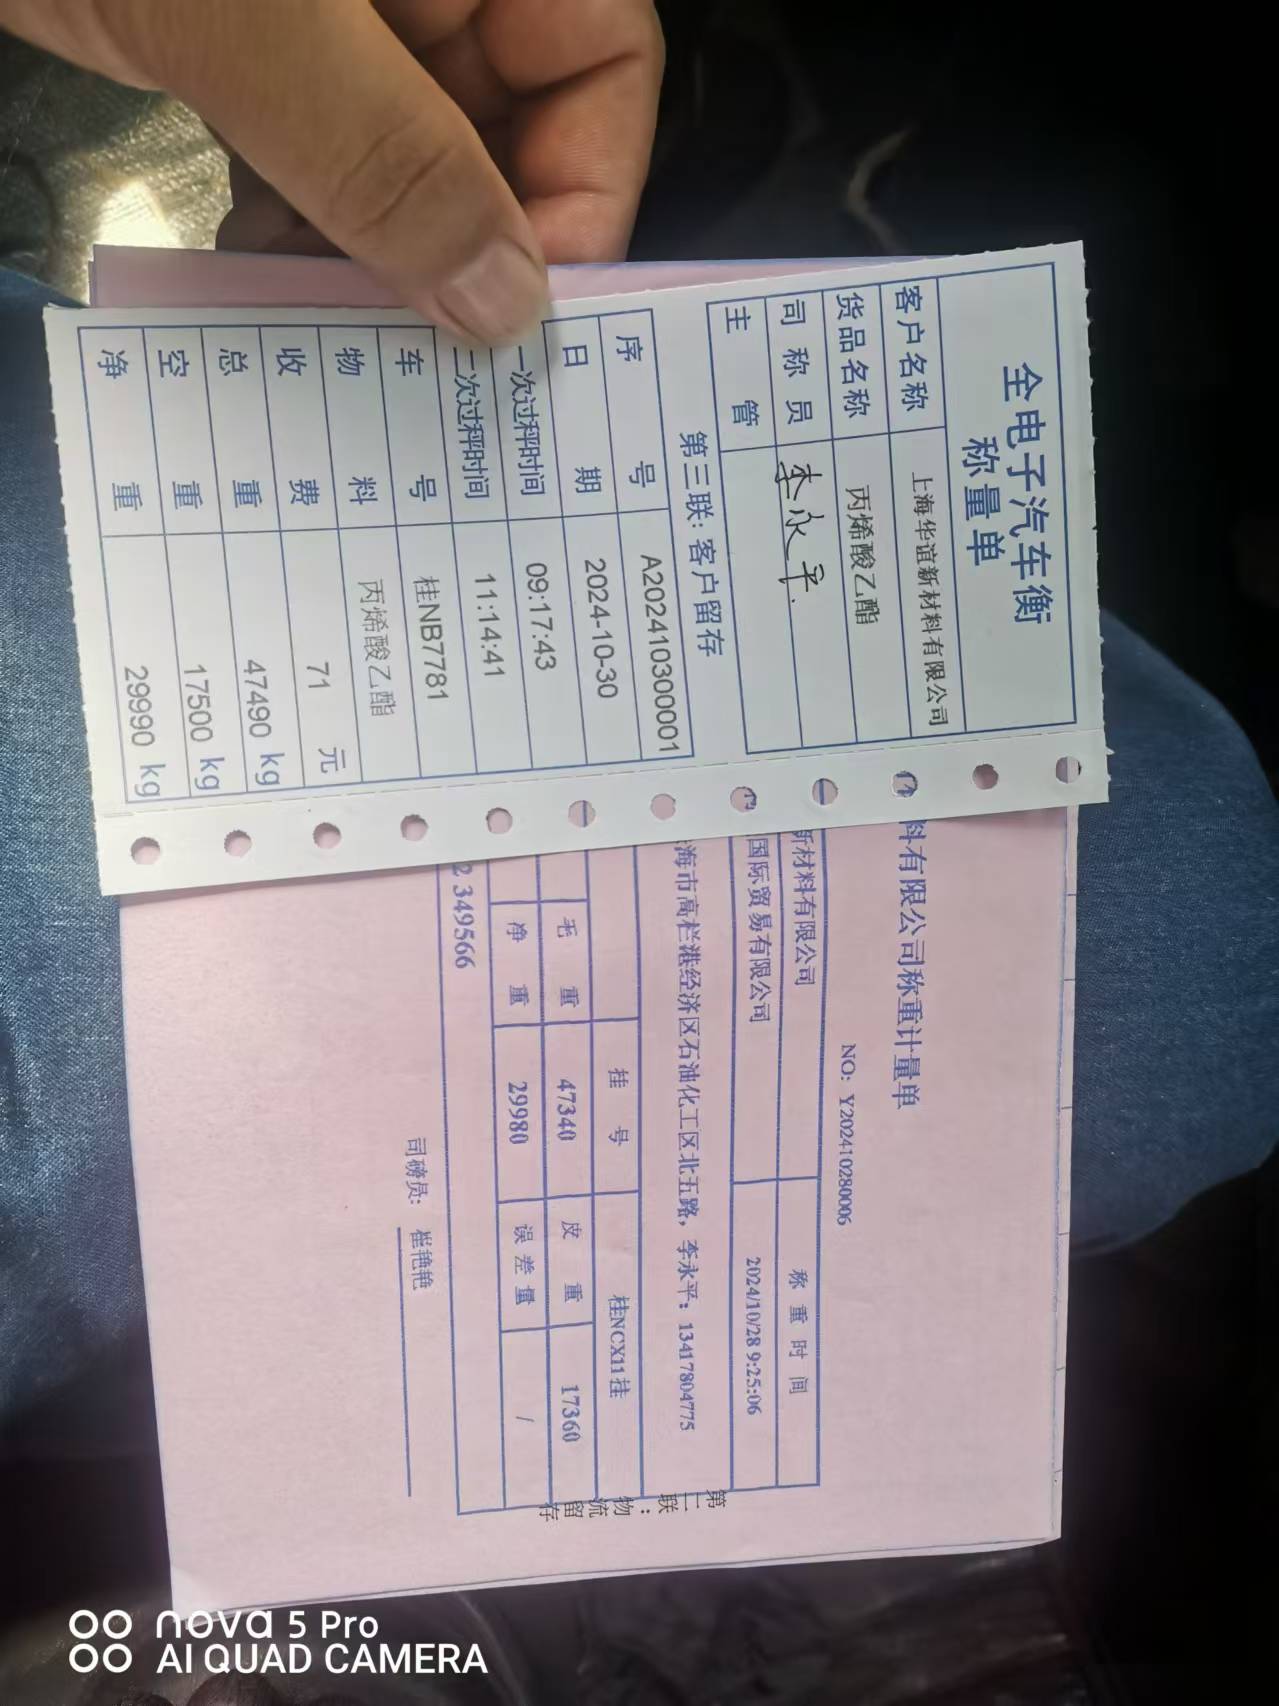 全电子汽车衡
称量单
客户名称 上海华谊新材料有限公司
货品名称 丙烯酸乙酯
司称员 李永平.
主管
第三联: 客户留存
序号 A202410300001
日期 2024-10-30
一次过秤时间 09:17:43
二次过秤时间 11:14:41
车号 桂NB7781
物料 丙烯酸乙酯
收费 71 元
总重 47490 kg
空重 17500 kg
净重 29990 kg
料有限公司称重计量单
NO: Y20241028006
新材料有限公司 称重时间
国际贸易有限公司 2024/10/28 9:25:06
海市高栏港经济区石油化工区北五路, 李永平: 13417804775
挂号 桂NCX11挂
毛重 47340 皮重 17360
净重 29980 误差量 /
2 349566
司磅员: 崔艳艳
第二联:物流留存
nova 5 Pro
AI QUAD CAMERA